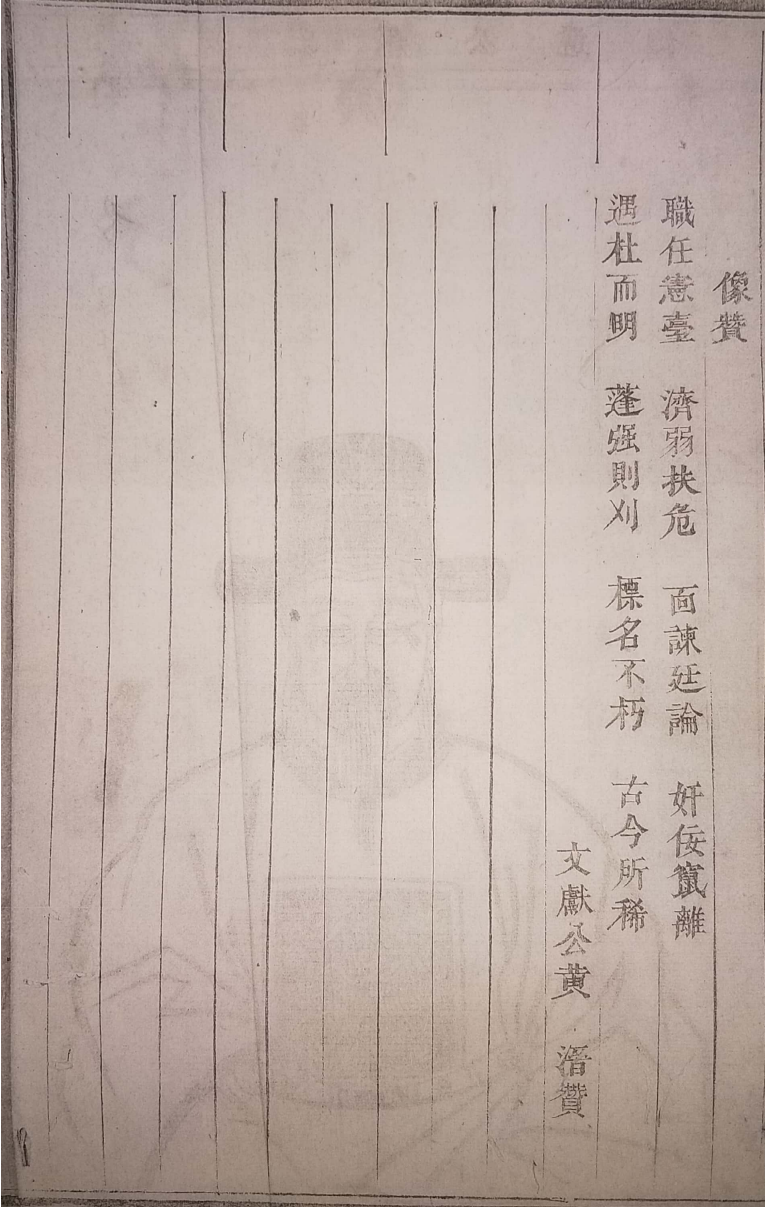 像贊
職任憲臺 濟弱扶危 面諫廷論 奸佞竄離
遇杜而明 蓬强則刈 標名不朽 古今所稀
文獻公黄 溍贊